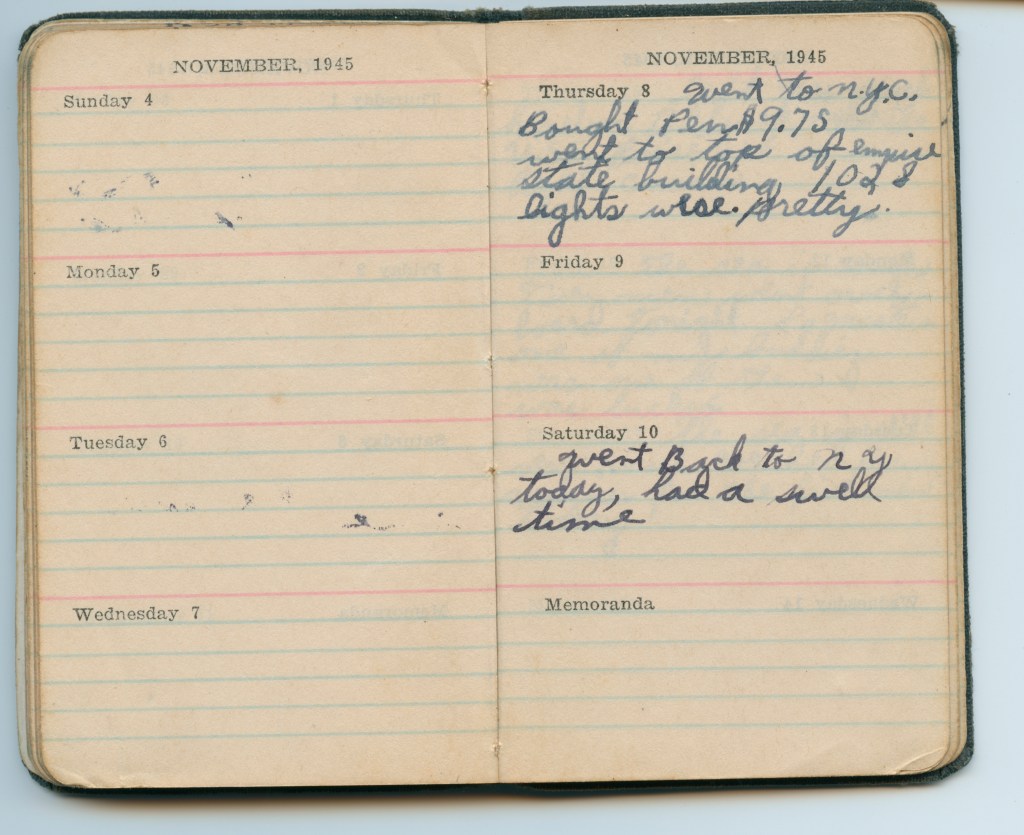 NOVEMBER, 1945
Sunday 4
Monday 5
Tuesday 6
Wednesday 7
NOVEMBER, 1945
Thursday 8 went to n.y.C.
Bought Pen $9.75
went to top of empire
state building, 102
lights wise. pretty.
Friday 9
Saturday 10
went Back to n y
today, had a swell
time
Memoranda